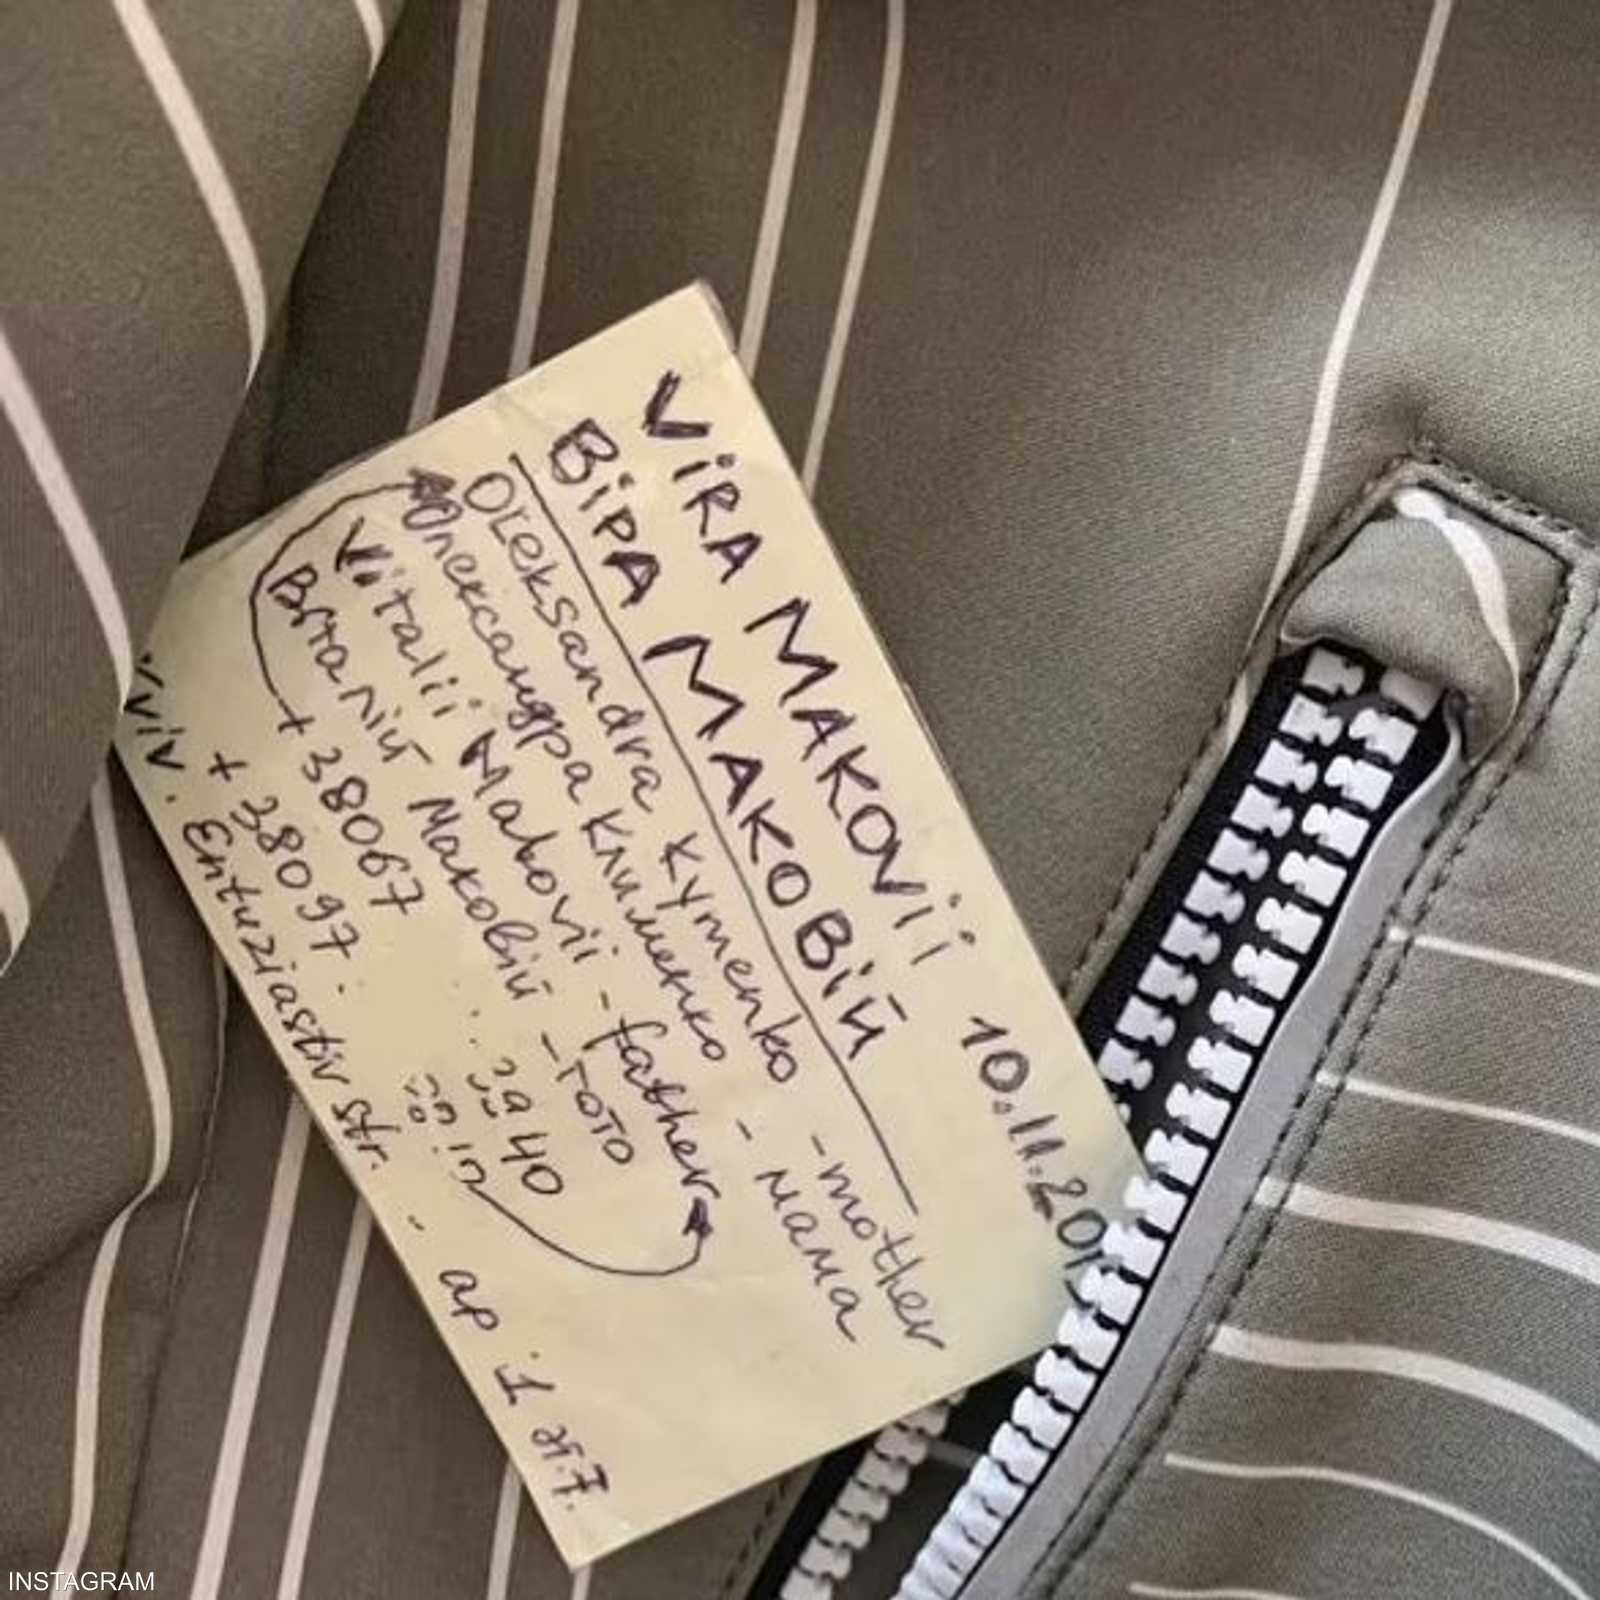 VIRA MAKOVII 10.11.20
ВІРА МАКОВІЙ
Oleksandra Kymenko - mother
Олександра Клименко - мама
Vitalii Makovii - father
Віталій Маковій - тото
+ 38067
+ 38097
40
in
Entuziastiv str. - ap 1
INSTAGRAM